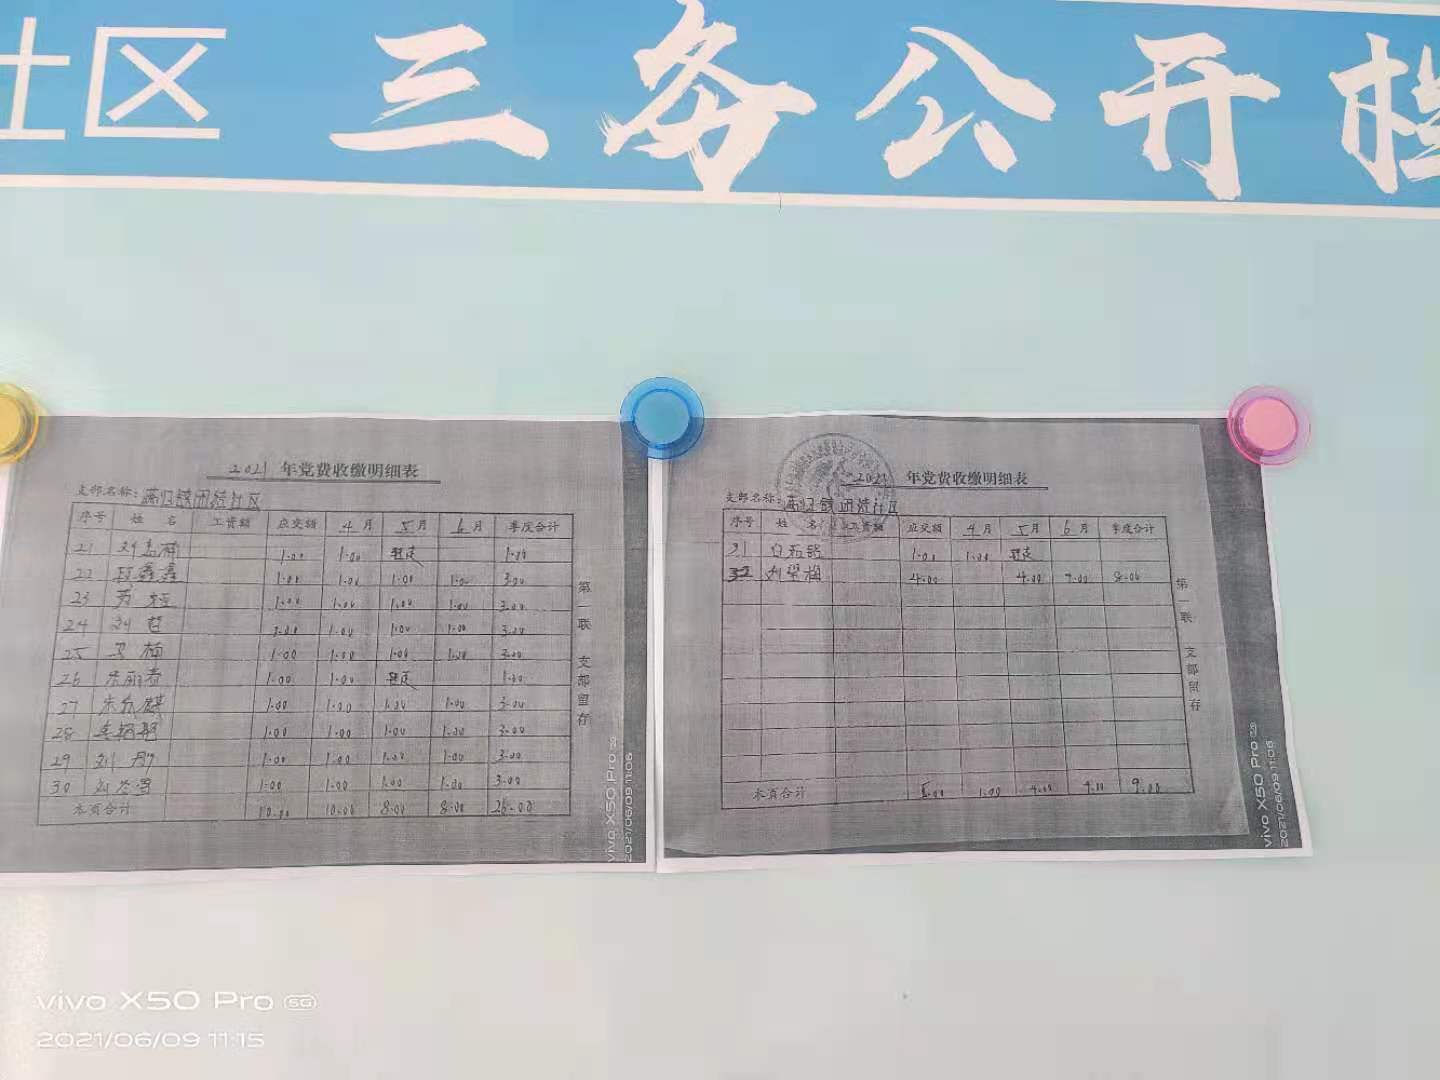 社区 三务公开栏
2021 年党费收缴明细表
支部名称:
序号 姓 名 工资额 应交额 4月 5月 6月 季度合计
21 1.00 1.00 转走 1.00
22 鑫鑫 1.00 1.00 1.00 1.00 3.00
23 1.00 1.00 1.00 1.00 3.00
24 刘哲 1.00 1.00 1.00 1.00 3.00
25 1.00 1.00 1.00 1.00 3.00
26 朱丽春 1.00 1.00 转走 1.00
27 1.00 1.00 1.00 1.00 3.00
28 1.00 1.00 1.00 1.00 3.00
29 刘 1.00 1.00 1.00 1.00 3.00
30 1.00 1.00 1.00 1.00 3.00
本页合计 10.00 10.00 8.00 8.00 26.00
第一联 支部留存
vivo X50 Pro 5G
2021/06/09 11:06
2021 年党费收缴明细表
支部名称:
序号 姓 名 工资额 应交额 4月 5月 6月 季度合计
31 1.00 1.00 转走
32 刘 4.00 4.00 4.00 8.00
本页合计 5.00 1.00 4.00 4.00 9.00
第一联 支部留存
vivo X50 Pro 5G
2021/06/09 11:06
vivo X50 Pro 5G
2021/06/09 11:15